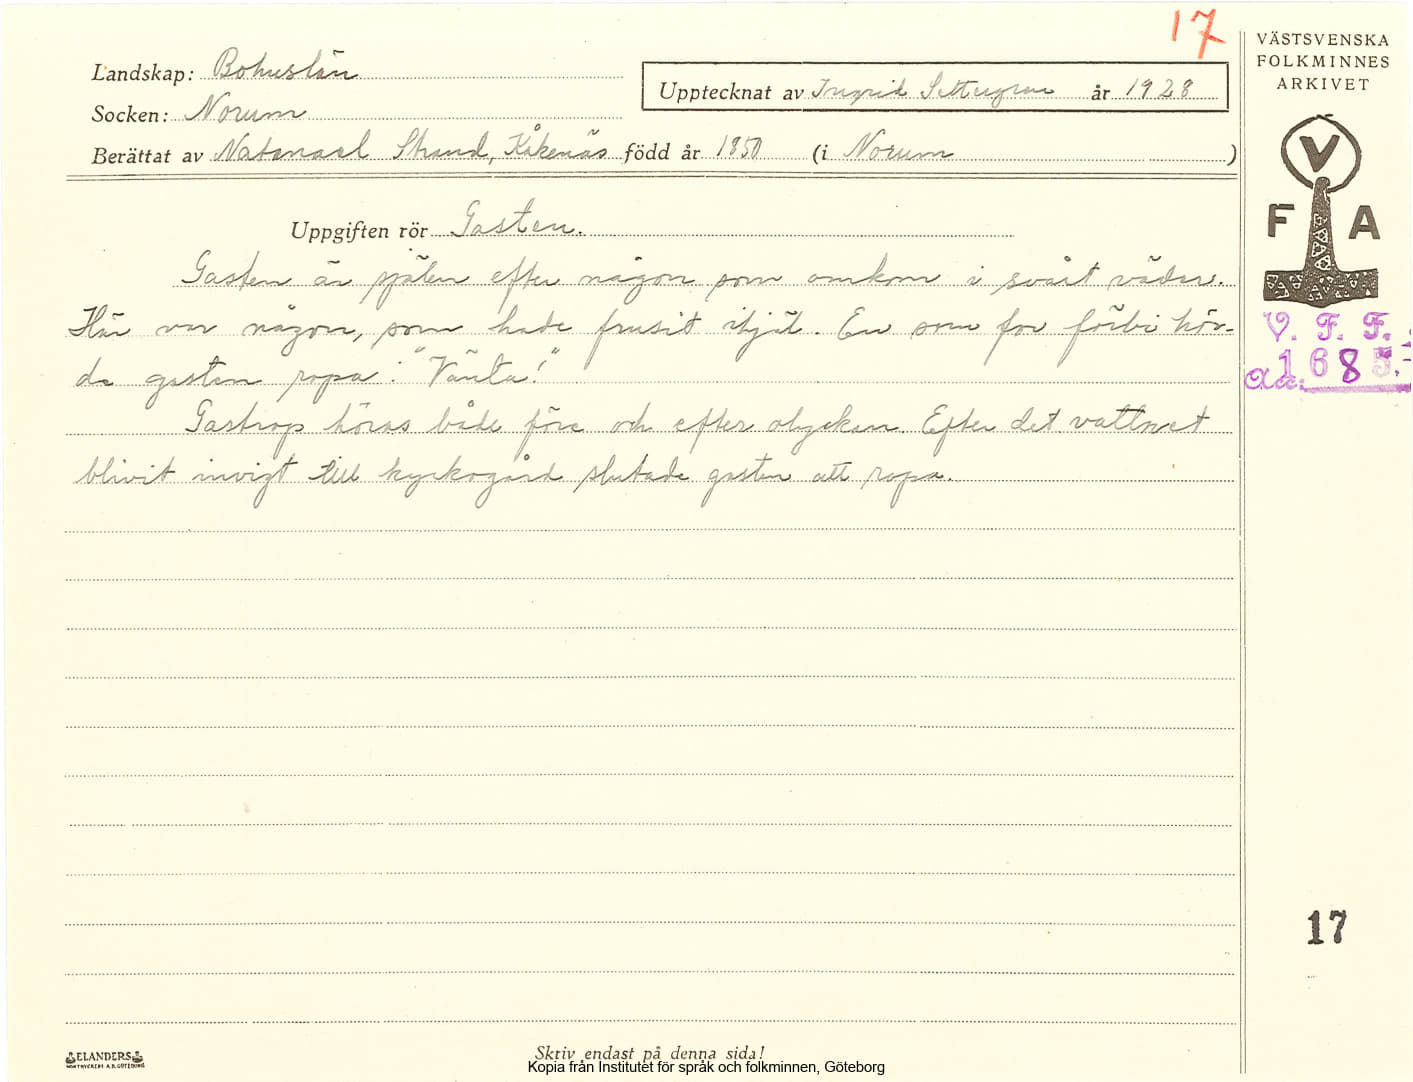 17
VÄSTSVENSKA
FOLKMINNES
ARKIVET
Landskap: Bohuslän
Upptecknat av Ingrid Settergren år 1928
Socken: Norum
Berättat av Natanael Strand, Kåkenäs född år 1850 (i Norum)
V
F A
Uppgiften rör Gasten.
Gasten är själen efter någon som omkom i svårt väder.
Här var någon, som hade frusit ihjäl. En som for förbi hör-
de gasten ropa: "Vänta!"
Gastrop höras både före och efter olyckan. Efter det vattnet
blivit invigt till kyrkogård slutade gasten att ropa.
V. F. F.
Acc: 1685.
17
ELANDERS
Skriv endast på denna sida!
Kopia från Institutet för språk och folkminnen, Göteborg